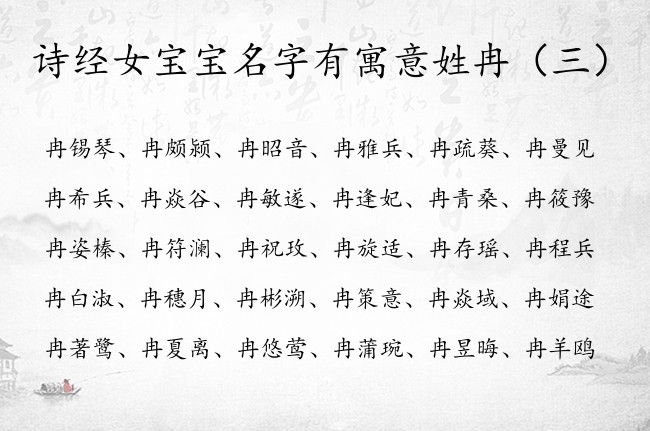 诗经女宝宝名字有寓意姓冉（三）
冉锡琴、冉颇颍、冉昭音、冉雅兵、冉疏葵、冉曼见
冉希兵、冉焱谷、冉敏遂、冉逢妃、冉青桑、冉筱豫
冉姿榛、冉符澜、冉祝玫、冉旋适、冉存瑶、冉程兵
冉白淑、冉穗月、冉彬溯、冉策意、冉焱域、冉娟途
冉著鹭、冉夏离、冉悠莺、冉蒲琬、冉昱晦、冉羊鸥